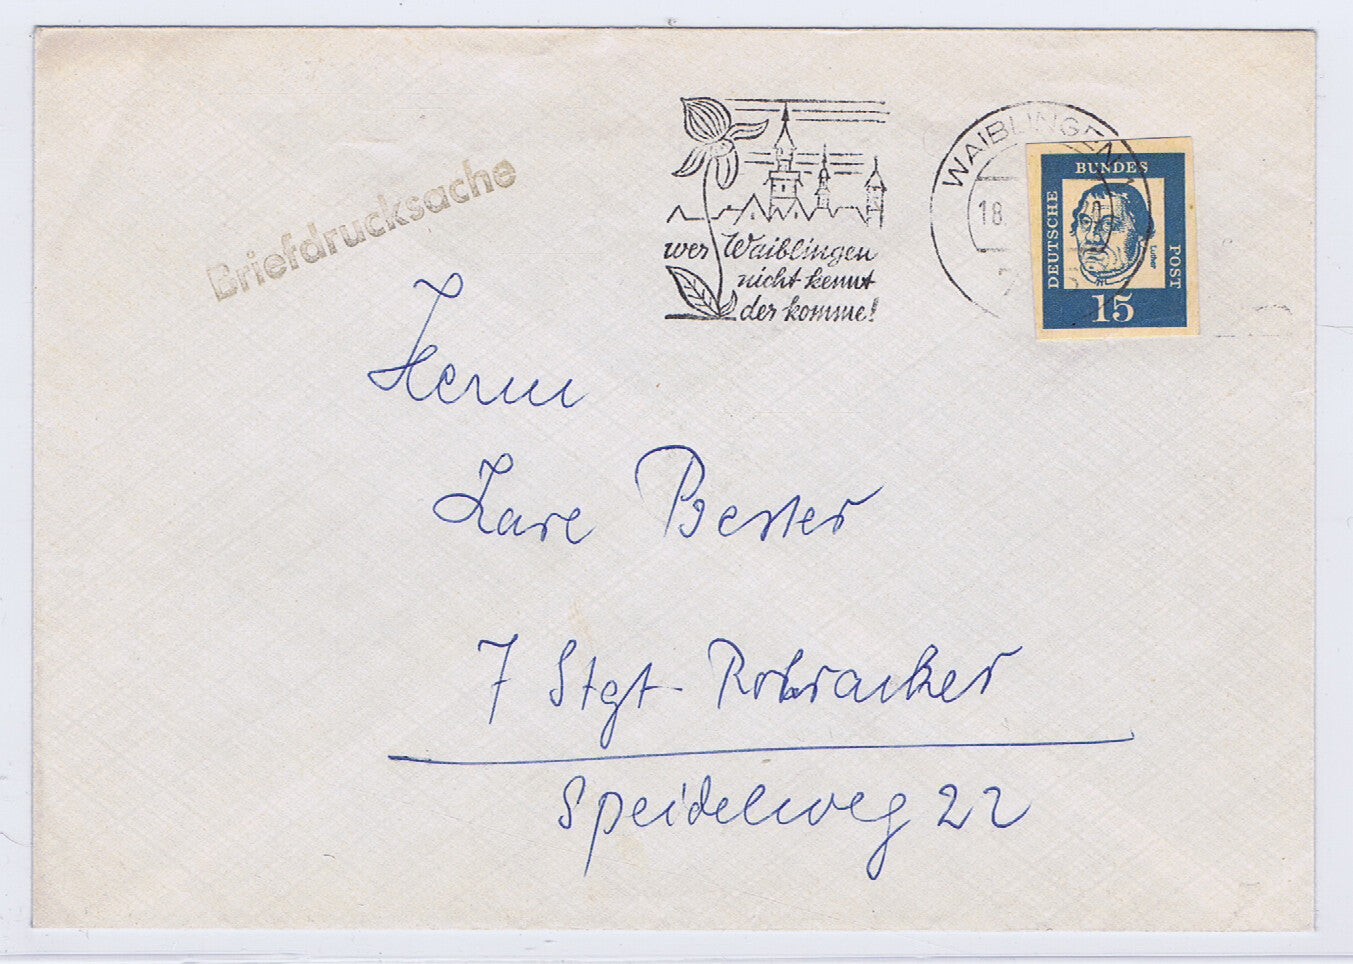 Briefdrucksache
wer Waiblingen
nicht kennt
der komme!
WAIBLINGEN
18.
DEUTSCHE
BUNDES
POST
Luther
15
Herrn
Lare Bester
7 Stgt-Rohracker
Speidelweg 22